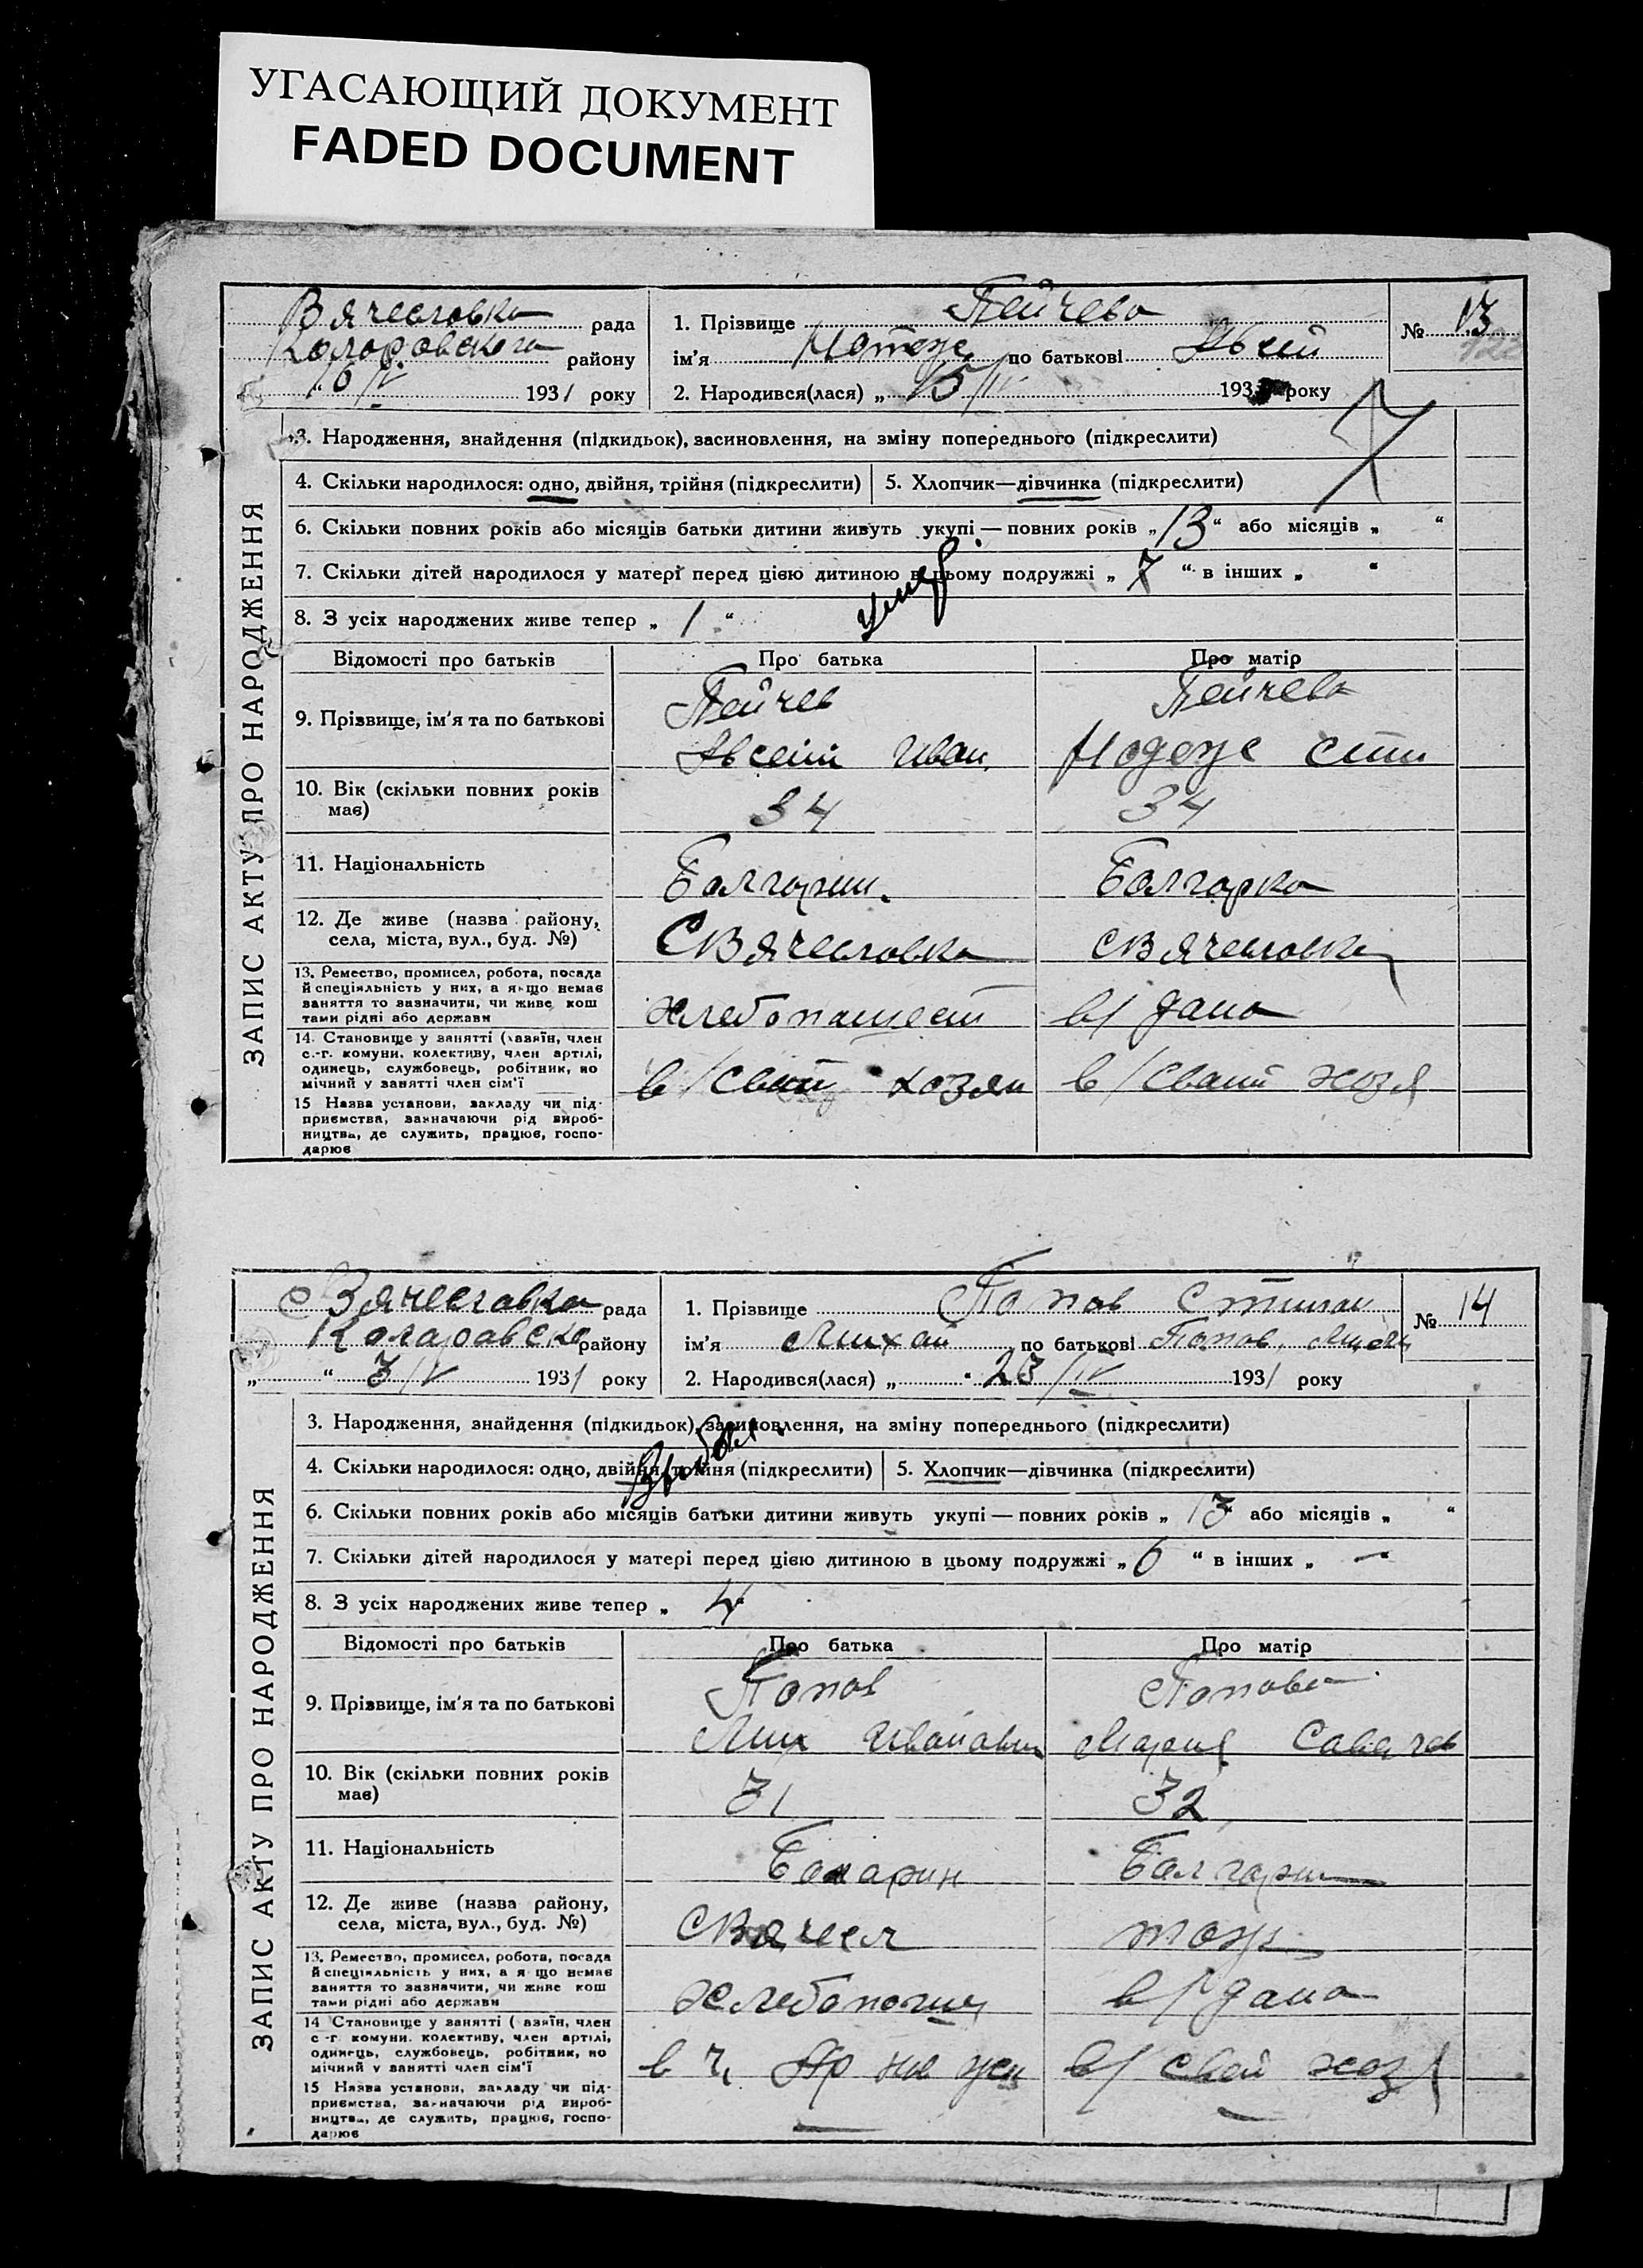 УГАСАЮЩИЙ ДОКУМЕНТ
FADED DOCUMENT
ЗАПИС АКТУ ПРО НАРОДЖЕННЯ
Вячесловка рада
Коларовского району
16/IV 1931 року
1. Прізвище Пейчева
ім'я по батькові Авсей
2. Народився(лася) „ 15/IV 193 року
№ 13
3. Народження, знайдення (підкидьок), засиновлення, на зміну попереднього (підкреслити)
4. Скільки народилося: одно, двійня, трійня (підкреслити)
5. Хлопчик—дівчинка (підкреслити)
6. Скільки повних років або місяців батьки дитини живуть укупі — повних років „ 13 “ або місяців „ “
7. Скільки дітей народилося у матері перед цією дитиною в цьому подружжі „ 7 “ в інших „ “
8. З усіх народжених живе тепер „ 1 “
умер
Відомості про батьків Про батька Про матір
9. Прізвище, ім'я та по батькові
Пейчев Пейчева
Авсей Иван.
10. Вік (скільки повних років має) 34 34
11. Національність Болгарин. Болгарка
12. Де живе (назва району, села, міста, вул., буд. №)
СВячесловка СВячесловка
13. Ремество, промисел, робота, посада й спеціяльність у них, а якщо немає заняття то зазначити, чи живе кош тами рідні або держави
хлебопашест в/ дама
14. Становище у занятті (хазяїн, член с.-г. комуни, колективу, член артілі, одинець, службовець, робітник, по мічний у занятті член сім'ї
в/свой хозяи в/своий хозя
15 Назва установи, закладу чи під- приємства, зазначаючи рід вироб- ництва, де служить, працює, госпо- дарює
ЗАПИС АКТУ ПРО НАРОДЖЕННЯ
С Вячесловка рада
Коларовско району
„ “ 3/V 1931 року
1. Прізвище Попов
ім'я Михай по батькові Попов,
2. Народився(лася) „ 23/IV 1931 року
№ 14
3. Народження, знайдення (підкидьок), засиновлення, на зміну попереднього (підкреслити)
4. Скільки народилося: одно, двійня, трійня (підкреслити)
5. Хлопчик—дівчинка (підкреслити)
6. Скільки повних років або місяців батьки дитини живуть укупі — повних років „ 13 “ або місяців „ “
7. Скільки дітей народилося у матері перед цією дитиною в цьому подружжі „ 6 “ в інших „ — “
8. З усіх народжених живе тепер „ 4 “
Відомості про батьків Про батька Про матір
9. Прізвище, ім'я та по батькові
Попов Попова
Мих Иванович Мария
10. Вік (скільки повних років має) 31 32
11. Національність
12. Де живе (назва району, села, міста, вул., буд. №)
СВячесл тоже
13. Ремество, промисел, робота, посада й спеціяльність у них, а якщо немає заняття то зазначити, чи живе кош тами рідні або держави
хлебопашец в/ дама
14 Становище у занятті (хазяїн, член с-г комуни. колективу, член артілі, одинець, службовець, робітник, по мічний у занятті член сім'ї
в/ свой хозя
15 Назва установи, закладу чи під- приємства, зазначаючи рід вироб- ництва, де служить, працює, госпо- дарює